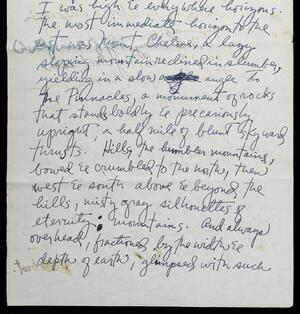 I was high & everywhere horizons.
The most immediate horizon to the
east was Mount Chalone, a lazy
sloping mountain reclined in slumber,
yielding in a slow angle to
the Pinnacles, a monument of rocks
that stands boldly & precariously
upright, a half mile of blunt skyward
thrusts. Hills, the humbler mountains,
bowed & crumbled to the north, then
west & south above & beyond the
hills, misty gray silhouettes of
eternity: mountains. And always
overhead, fractioned by the width &
depth of earth, glimpsed with such